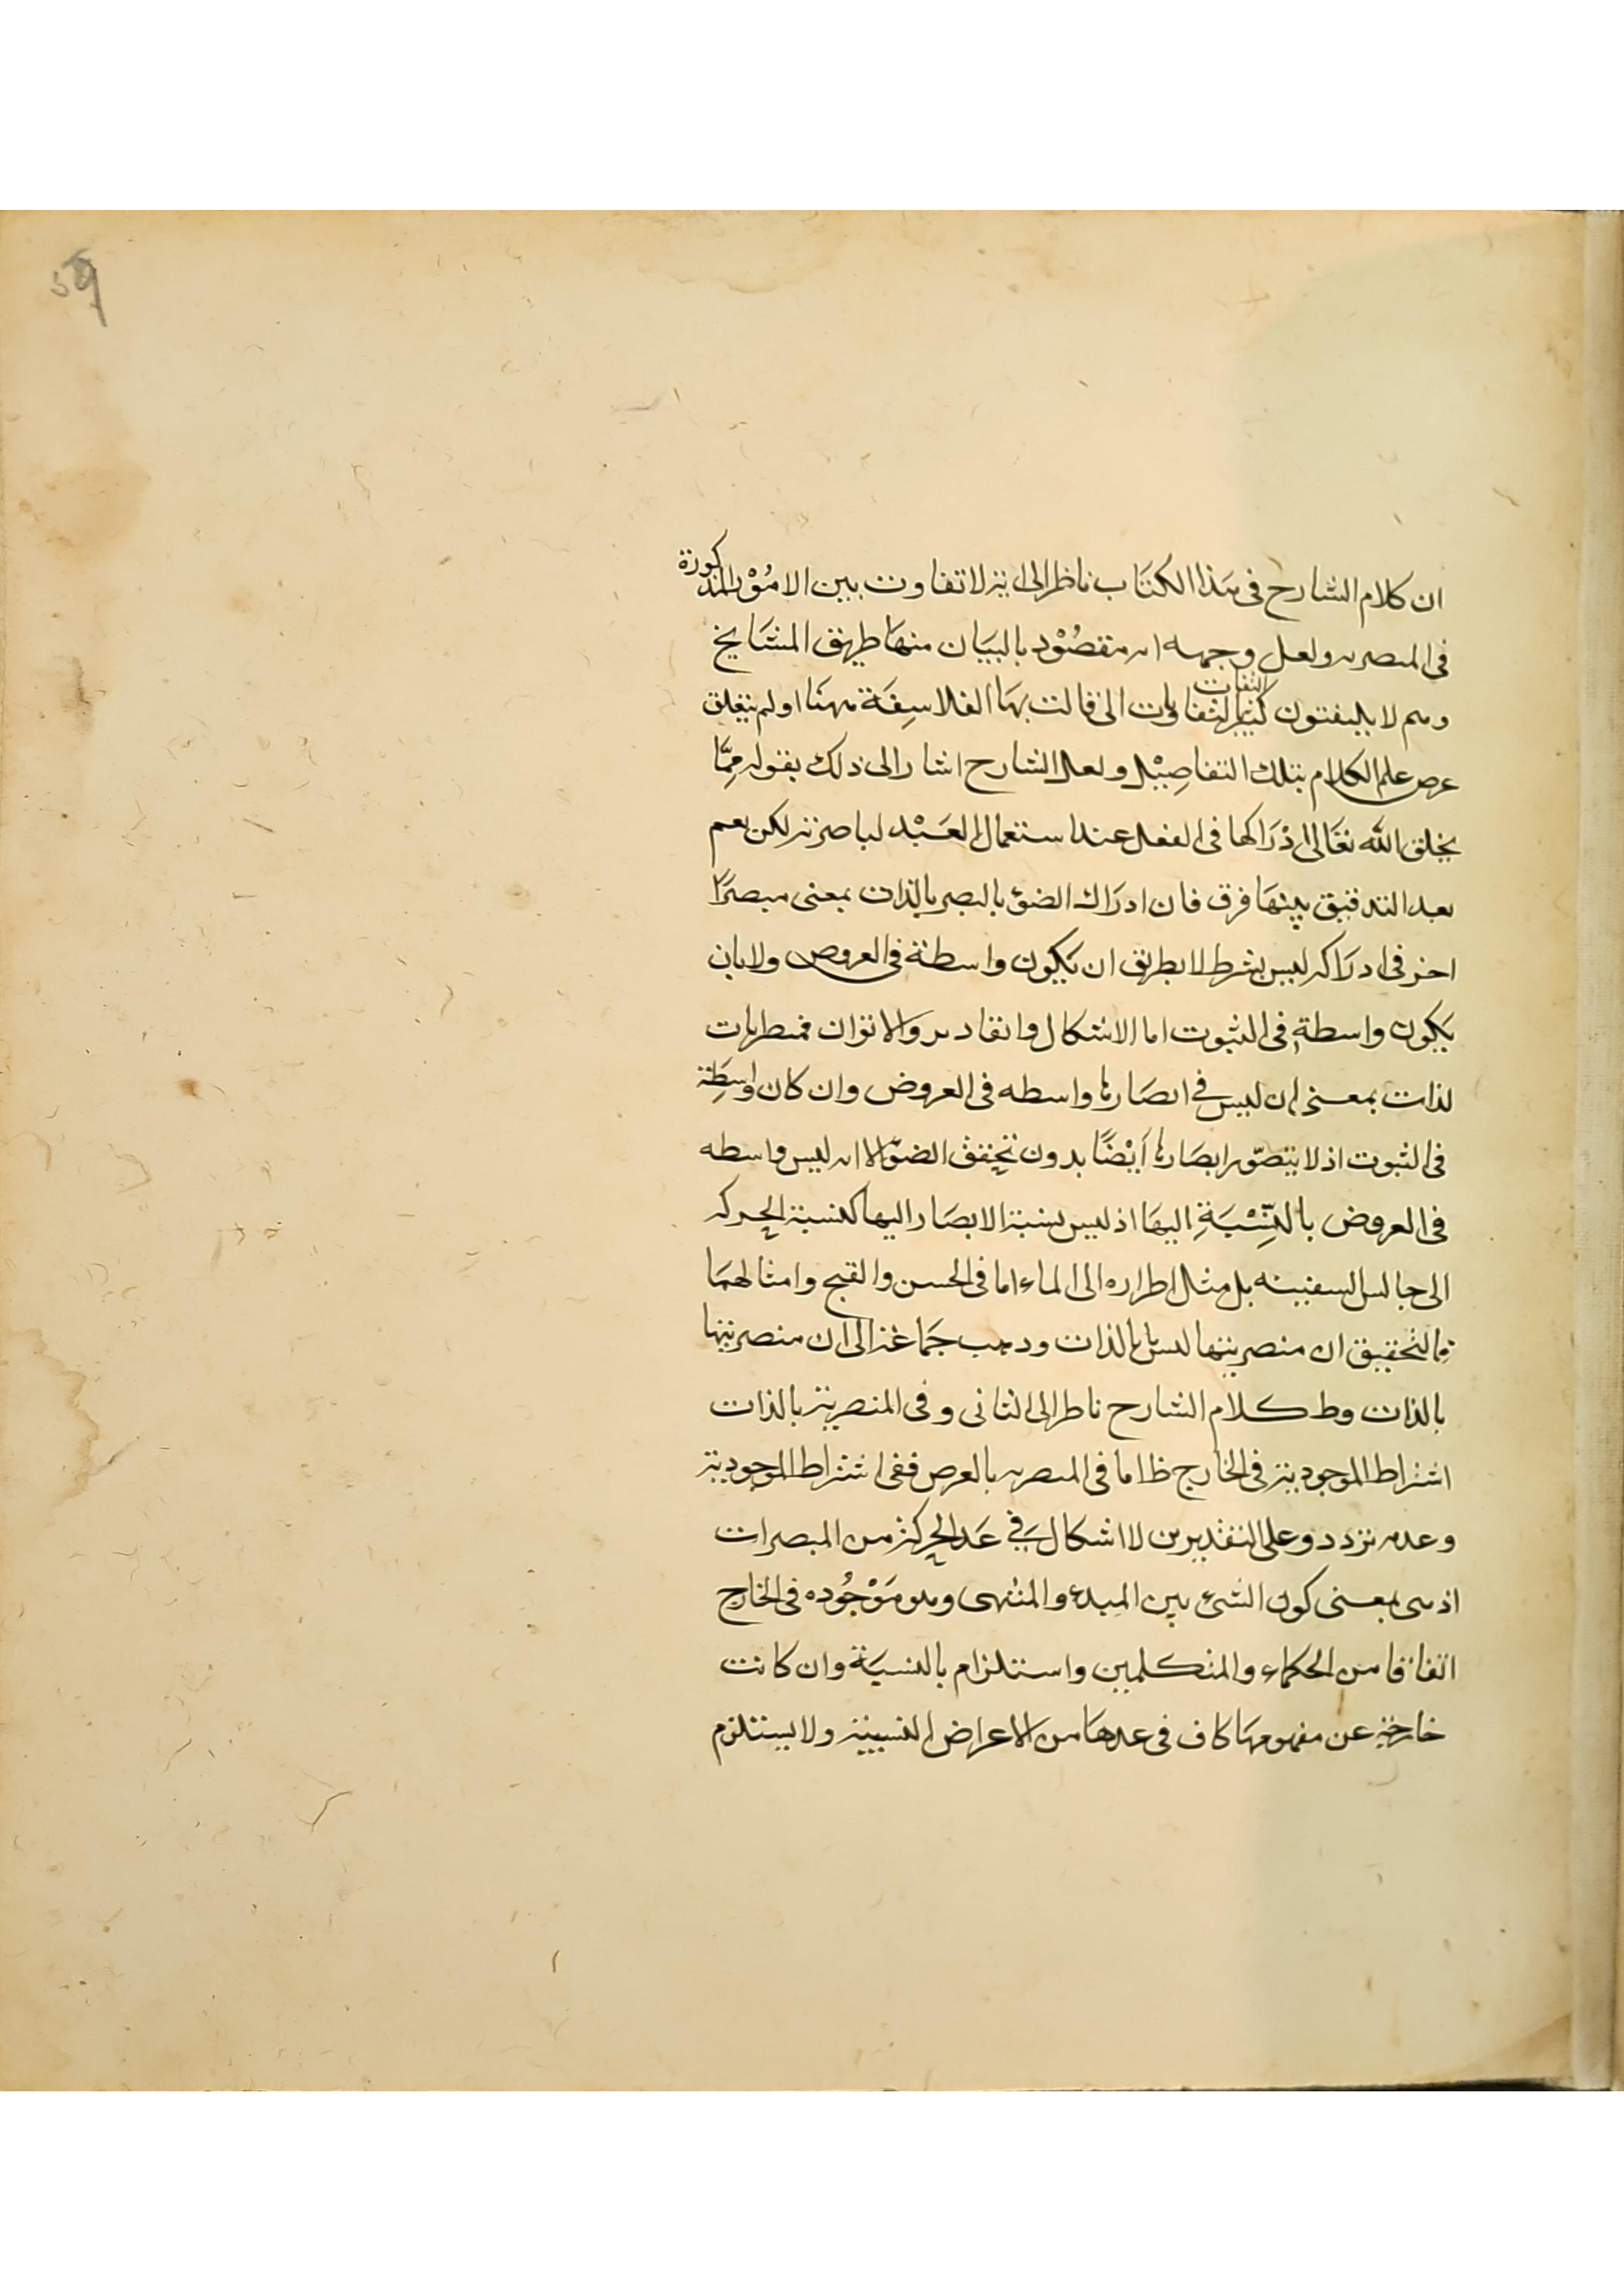 59
ان كلام الشارح فى هذا الكتاب ناظر الى انه لا تفاوت بين الامُوْر المذكورة
فى المبصريه ولعل وجهه ان مقصُوْد بالبيَان منها طريق المشَايخ
وهم لا يليفتون كثير التفات لتفاوات التى قالت بهَا الفلاسِفَة ههنَا او لم يتعلق
عرض علم الكلام بتلك التفاصِيْل ولعل الشارح اشار الى ذلك بقوله مِمَّا
يخلق الله تعَالى ادْرَاكها فى العقل عند استعمال العَبْد لباصرته لكن نعم
بعد التدقيق بينهَا فرق فان ادرَاك الضوء بالبصر بالذات بمعنى مبصرًا
اخر فى ادرَاكه ليس بشرط لا بطريق ان يكون واسطة فى العروض ولا بان
يكون واسطةٍ فى الثبوت اما الاشكال وانقادير والاتوان فمنطريات
لذات بمعنى ان ليس فى ابصَارها واسطه فى العروض وان كان واسِطَة
فى الثبوت اذ لا يتصّور ابصَارها اَيْضًا بدون تحقق الضوّ الا انه ليس واسطه
فى العروض بالنِّسْبَةِ اليهَا اذ ليس نسبة الابصَار اليها كنسبة الحركه
الى جالس السفينه بل مثل اطراره الى الماء اما فى الحسن والقبح وامثالهمَا
فالتحقيق ان منصريتها ليس بالذات ودهب جمَاعة الى ان منصريتها
بالذات وظ كلام الشارح ناطر الى الثانى وفى المنصرية بالذات
اشتراط الموجودية فى الخارج ظ اما فى المبصريه بالعرض ففى اشتراط الموجودية
وعدمه تردد وعلى التقديرين لا اشكال فِي عَد الحركة من المبصرات
اذ هى بمعنى كون الشئ بين المبدء والمنتهى وهو مَوْجُوده فى الخارج
اتفاقا من الحكماء والمتكلمين واستلزام بالنسبَة وان كانت
خارجة عن مفهومهَا كاف فى عدهَا من الاعراض النسبية ولا يستلزم